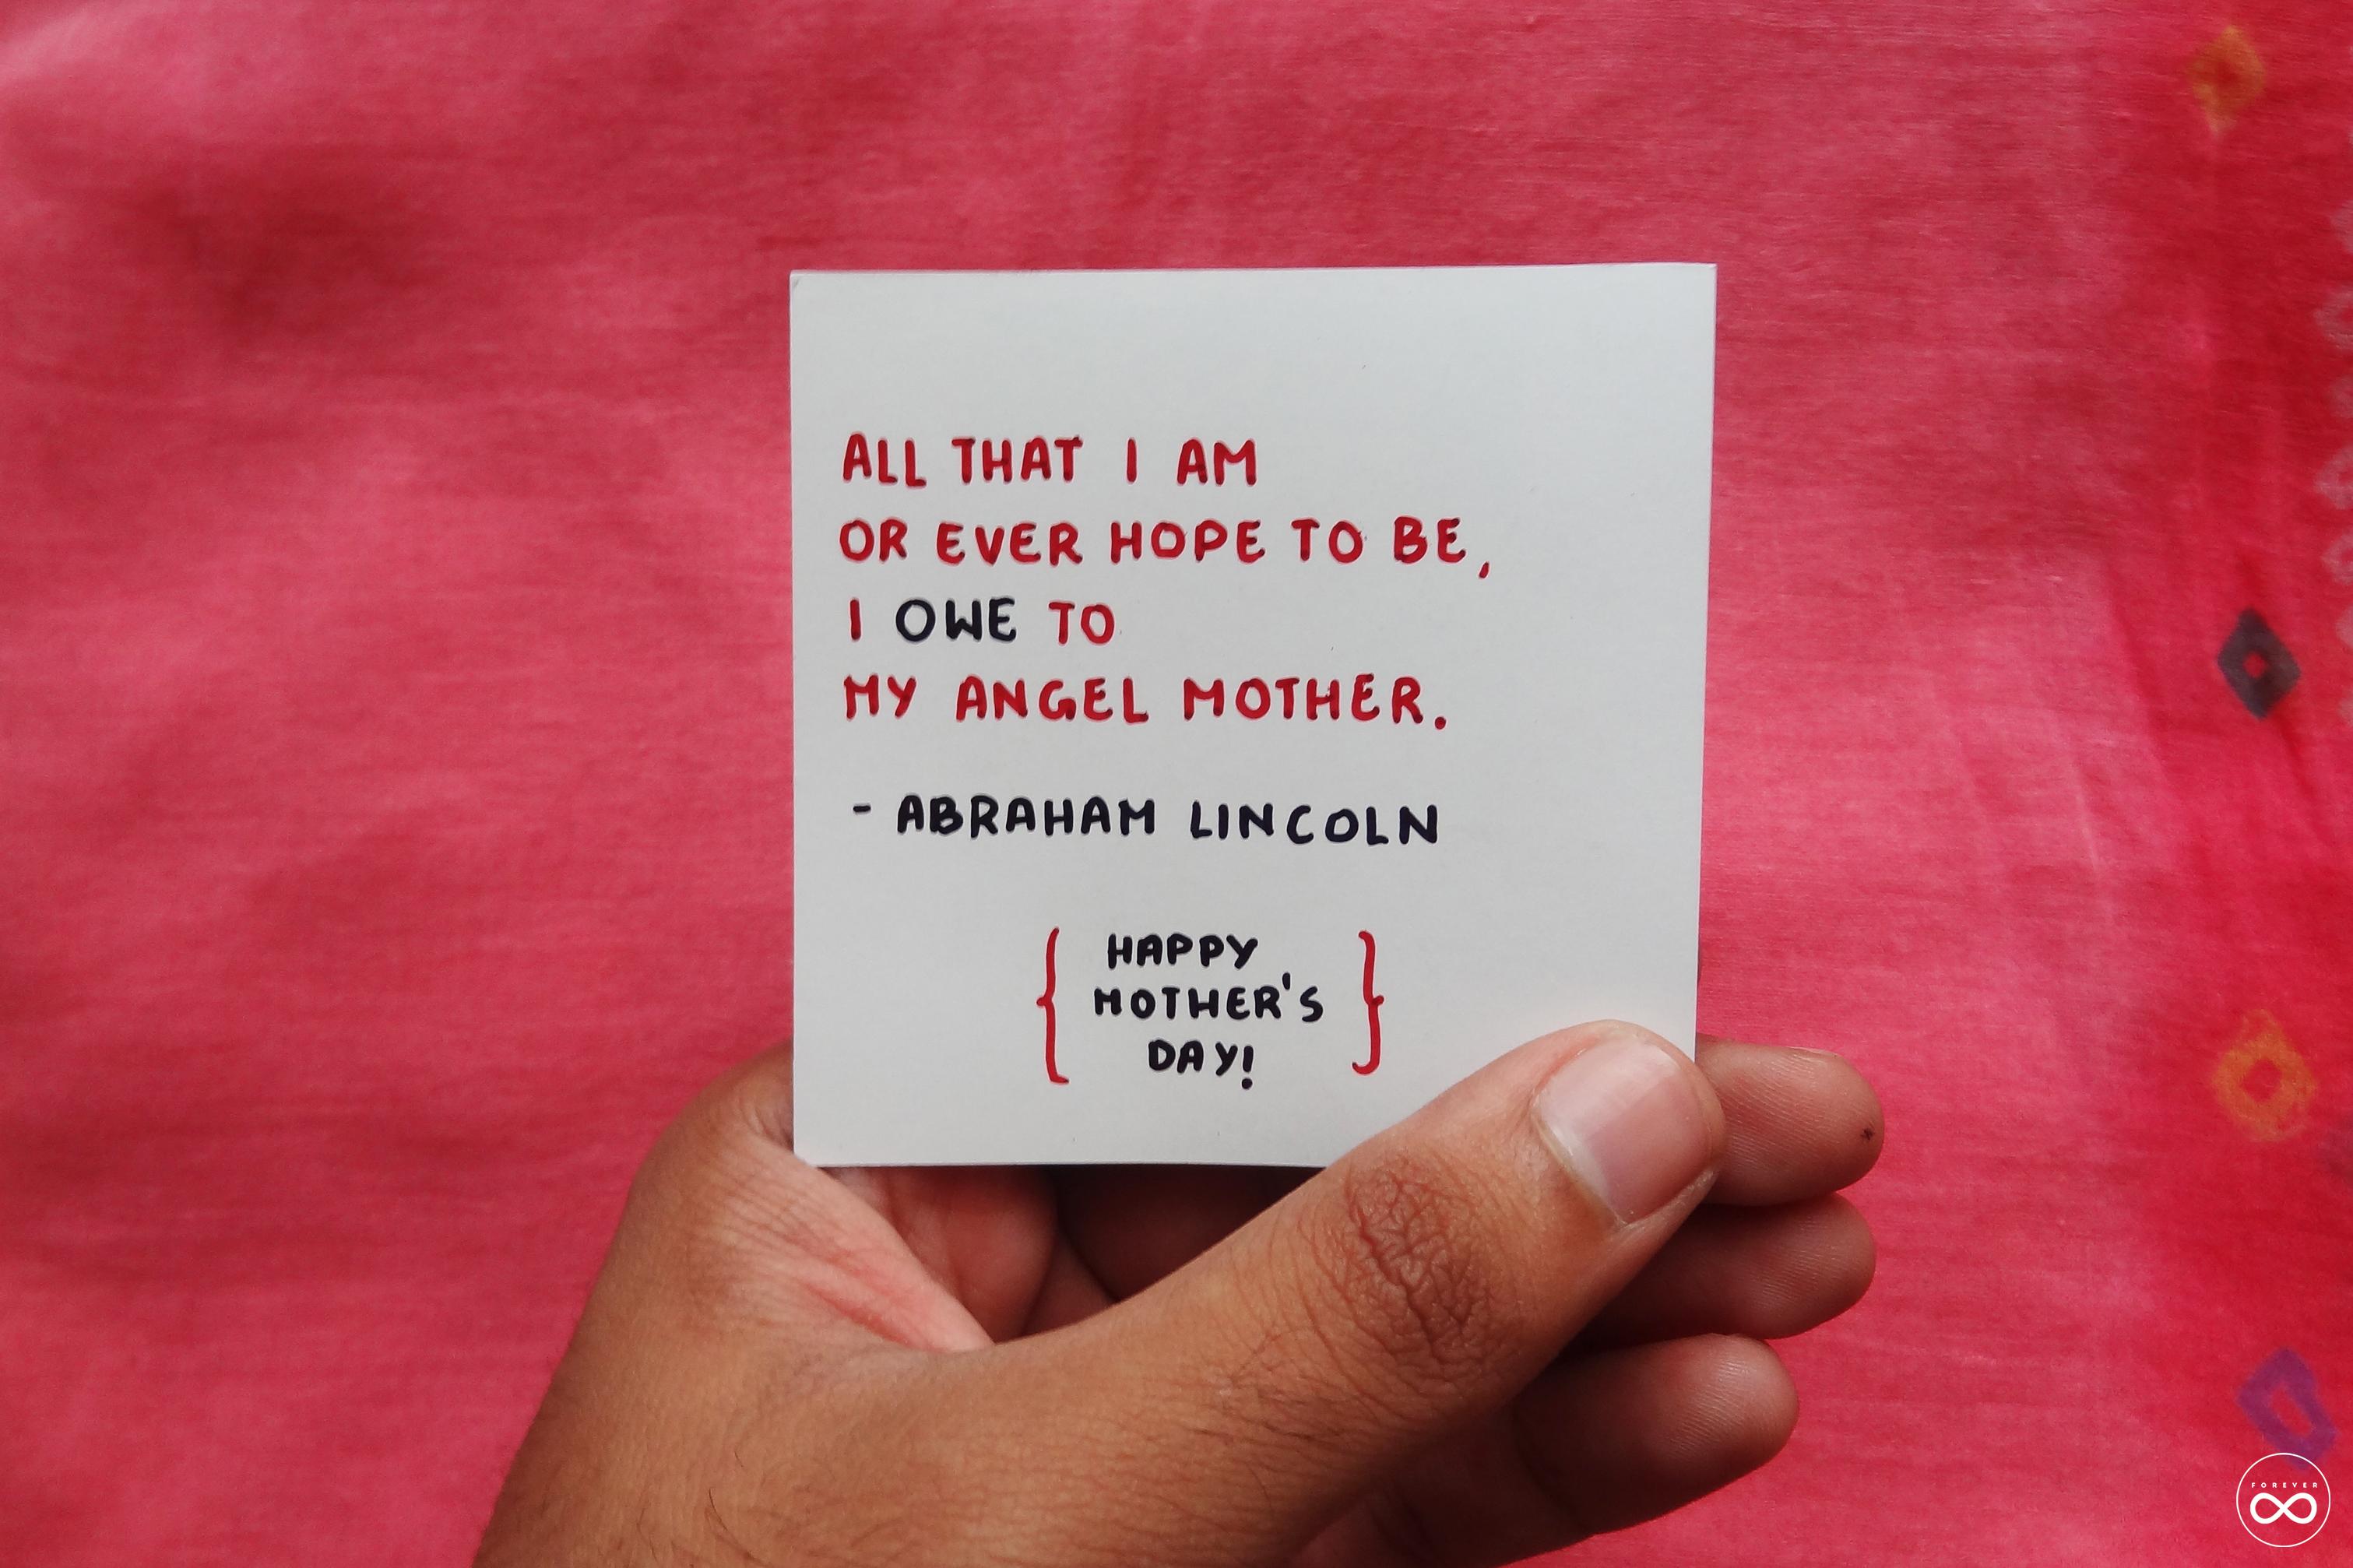 ALL THAT I AM
OR EVER HOPE TO BE,
I OWE TO
MY ANGEL MOTHER.
- ABRAHAM LINCOLN
{ HAPPY
MOTHER'S
DAY! }
FOREVER